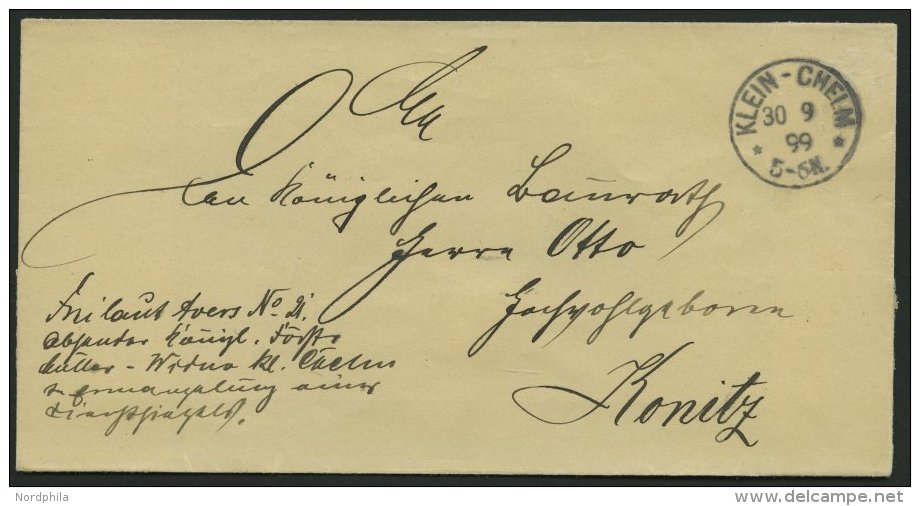 KLEIN - CHELM
30 9
99
* 5-6N. *
An
den Königlichen Baurath
Herrn Otto
Hochwohlgeboren
Konitz
Frei laut Avers No 21.
Absender Königl. Förster
Müller - Kl. Chelm
in Ermangelung eines
Dienstsiegels.
Nordphila
delcampe.net